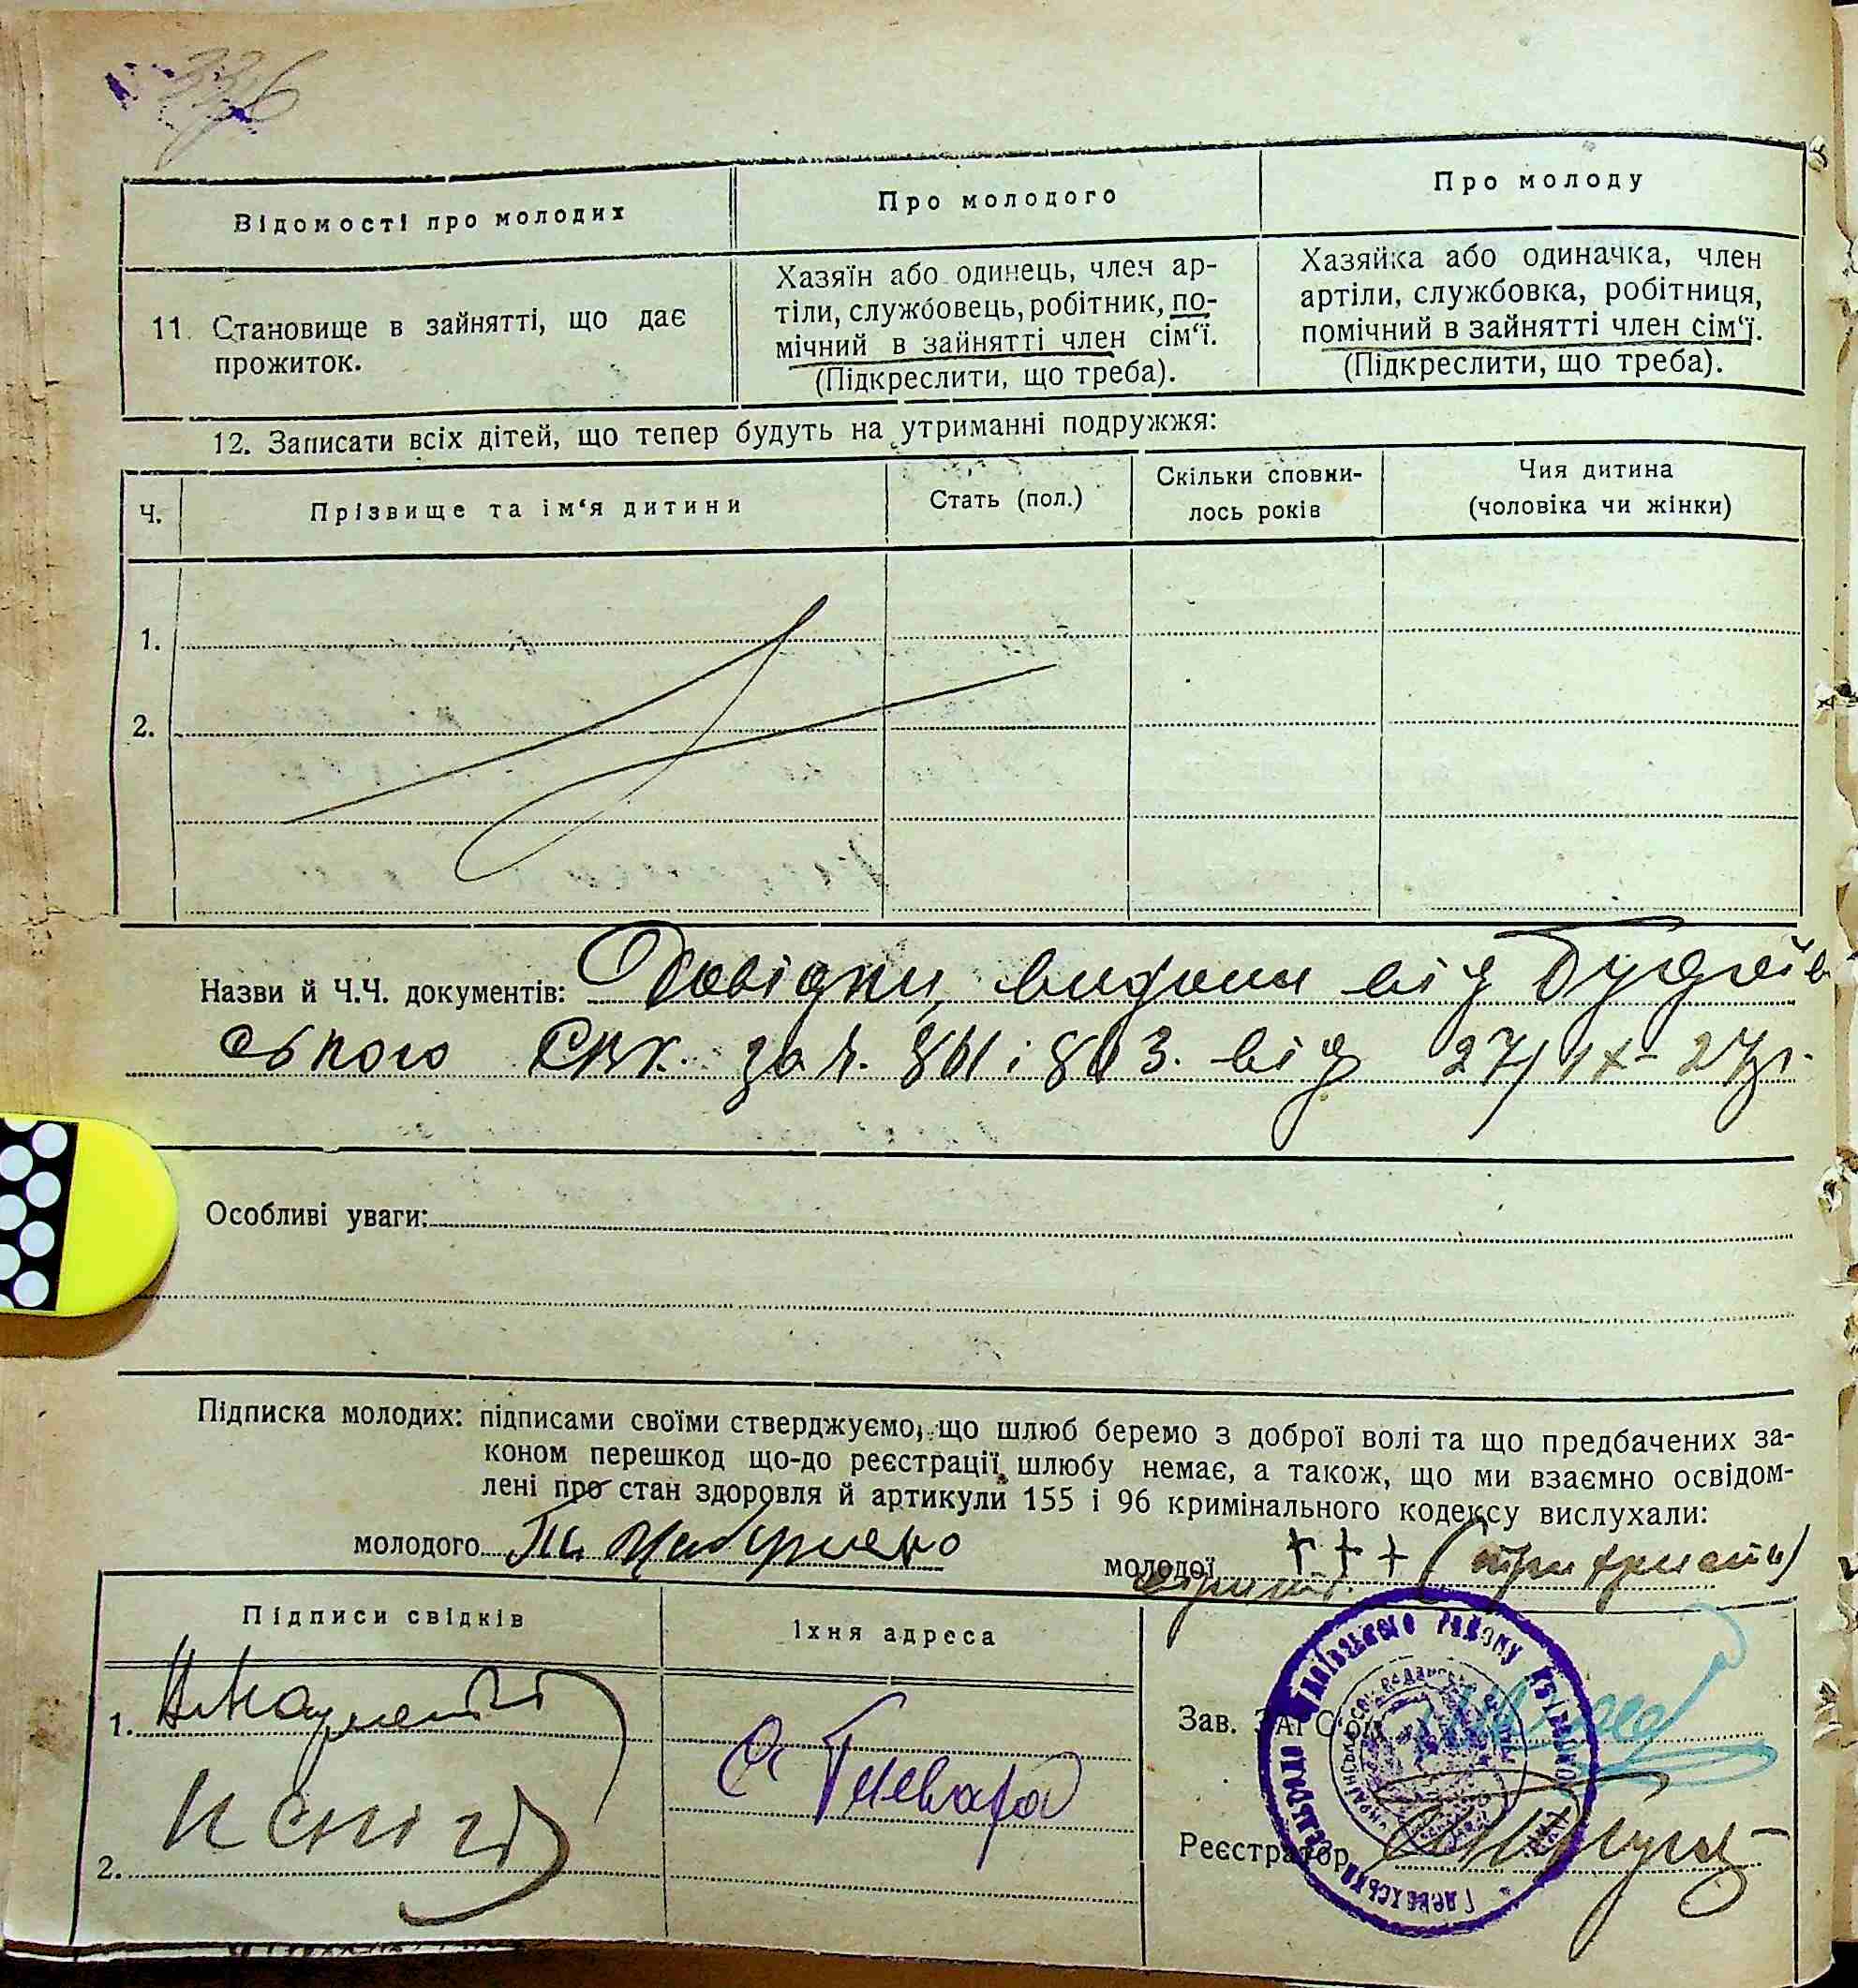 336
Відомості про молодих
Про молодого
Про молоду
11. Становище в зайнятті, що дає
прожиток.
Хазяїн або одинець, член ар-
тіли, службовець, робітник, по-
мічний в зайнятті член сім‘ї.
(Підкреслити, що треба).
Хазяйка або одиначка, член
артіли, службовка, робітниця,
помічний в зайнятті член сім‘ї.
(Підкреслити, що треба).
12. Записати всіх дітей, що тепер будуть на утриманні подружжя:
Ч.
Прізвище та ім‘я дитини
Стать (пол.)
Скільки сповни-
лось років
Чия дитина
(чоловіка чи жінки)
1.
2.
Назви й Ч.Ч. документів: Довідки, видани від
ського за ч. від 27/IX-27р.
Особливі уваги:
Підписка молодих: підписами своїми стверджуємо, що шлюб беремо з доброї волі та що предбачених за-
коном перешкод що-до реєстрації шлюбу немає, а також, що ми взаємно освідом-
лені про стан здоровля й артикули 155 і 96 кримінального кодексу вислухали:
молодого
молодої + + + (три хрести)
Підписи свідків
Їхня адреса
1.
2.
Зав. ЗАГС‘ом
Реєстратор